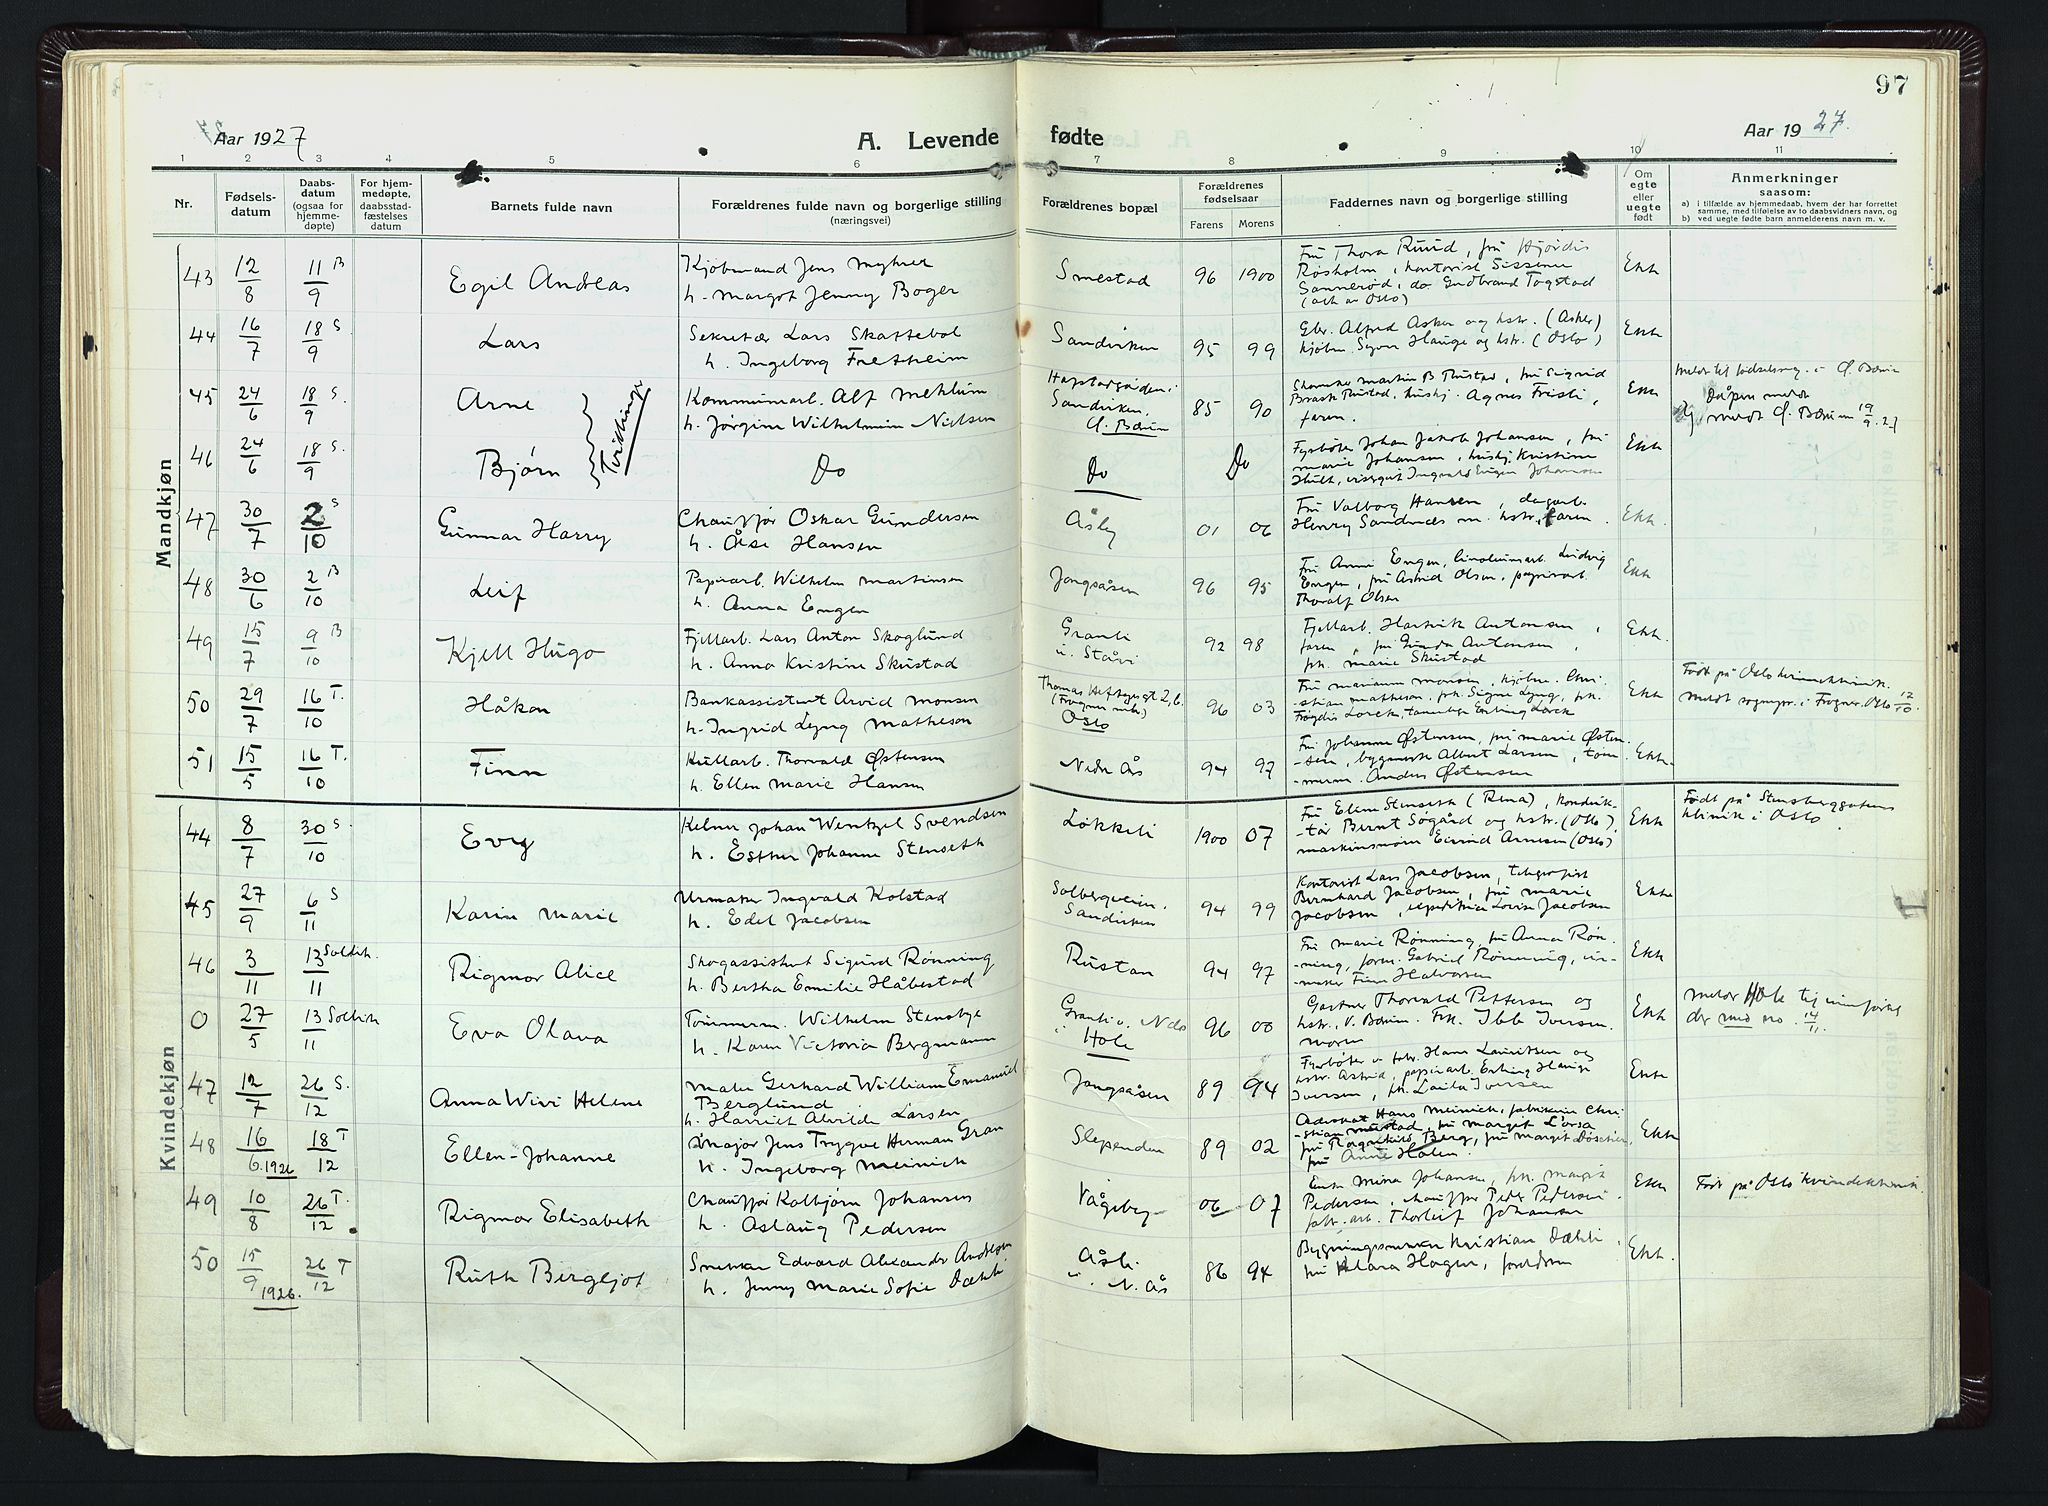 97
Aar 1927
A. Levende fødte
Aar 1927.
1 2 3 4 5 6 7 8 9 10 11
Nr.
Fødsels-
datum
Daabs-
datum
(ogsaa for
hjemme-
døpte)
For hjem-
medøpte,
daabsstad-
fæstelses
datum
Barnets fulde navn
Forældrenes fulde navn og borgerlige stilling
(næringsvei)
Forældrenes bopæl
Forældrenes
fødselsaar
Farens Morens
Faddernes navn og borgerlige stilling
Om
egte
eller
uegte
født
Anmerkninger
saasom:
a) i tilfælde av hjemmedaab, hvem der har forrettet
samme, med tilføielse av to daabsvidners navn, og
b) ved uegte fødte barn anmelderens navn m. v.
Mandkjøn
43 12/8 11/9 B Egil Andreas Kjøbmand Jens Myhrer
h. Margot Jenny Boger Smestad 96 1900 Fru Thora Ruud, fru Hjørdis
Røsholm, kontorist
Sannerød, do Gudbrand Tagstad
(alle av Oslo) Ekte
44 16/7 18/9 S. Lars Sekretær Lars Skattebol
h. Ingeborg Fretheim Sandviken 95 99 Gbr. Alfred Asker og hstr. (Asker)
kjøbm. Sigv. Hauge og hstr. (Oslo) Ekte
45 24/6 18/9 S. Arne Tvillinger Kommunearb. Alf Mehlum
h. Jørgine Wilhelmine Nielsen
Sandviken. Ø. Bærum 85 90 Martin B Rustad, fru Sigrid
Braask Rustad, hushj. Agnes Fristi,
faren. Ekte
Dåpen meldt
meldt Ø. Bærum 19/9. 27
46 24/6 18/9 S. Bjørn Do Do Do Fyrbøter Johan Jakob Johansen, fru
Marie Johansen, hushj. Kristine
Hult, visergut Ingvald Eugen Johansen Ekte
47 30/7 2/10 S Gunnar Harry Chauffør Oskar Gundersen
h. Åse Hansen Åsly 01 06 Fru Valborg Hansen, dagarb.
Henry Sandnæs m. hstr., faren. Ekte.
48 30/6 2/10 B Leif Papirarb. Wilhelm Martinsen
h. Anna Engen Jongsåsen 96 95 Fru Anni Engen, linoleumarb. Ludvig
Engen, fru Astrid Olsen, papirarb.
Thoralf Olsen Ekte
49 15/7 9/10 B Kjell Hugo Fjellarb. Lars Anton Skoglund
h. Anna Kristine Skustad Granli
u. Ståvi 92 98 Fjellarb. Hartvik Antonsen,
faren, fru Gunda Antonsen,
frk. Marie Skustad Ekte.
50 29/7 16/10 T. Håkon Bankassistent Arvid Monsen
h. Ingrid Lyng Matheson Thomas Heftyesgt 2, b.
(Frogner)
Oslo 96 03 Fru Mariann Monsen, kjøbm. Chri-
stian Matheson, frk. Signe Lyng, frk.
Frøydis Lorck, tannlæge Erling Lorck Ekte Født på Oslo kvindeklinik.
Meldt sognepr. i Frogner, Oslo 17/10.
51 15/5 16/10 T. Finn Kullarb. Thorvald Østensen
h. Ellen Marie Hansen Nedre Ås 94 97 Fru Johanne Østensen, fru Marie Østen-
sen, byggmester Albert Larsen, tøm-
merm. Anders Østensen Ekte
Kvindekjøn
44 8/7 30/10 S. Evy Kelner Johan Wentzel Svendsen
h. Esther Johanne Stenseth Løkkeli 1900 07 Fru Eline Stenseth (Rena), konduk-
tør Bernt Søgård og hstr. (Oslo)
Eivind Arnesen (Oslo) Ekte Født på Stensberggatens
klinik i Oslo.
45 27/9 6/11 S Karin Marie Urmaker Ingvald Kolstad
h. Edel Jacobsen Solbergveien.
Sandviken 94 99 Kontorist Lars Jacobsen, telegrafist
Bernhard Jacobsen, fru Marie
Jacobsen, expeditrice Lovise Jacobsen Ekte
46 3/11 13/11 Soldik. Rigmor Alice Skogassistent Sigurd Rønning
h. Bertha Emilie Håbestad Rustan 94 97 Fru Marie Rønning, fru Anna Røn-
ning, form. Gabriel Rønning, ur-
maker Finn Halvorsen Ekte
0 27/5 13/11 Soldik Eva Olava Tømmerm. Wilhelm Stensbye
h. Karen Victoria Bergmann Granli
i Hole 96 00 Gartner Thorvald Pettersen og
hstr., V. Bærum. Frk. Ibb Iversen.
moren Ekte Meldt Hole til innførsel
der med no. 14/11.
47 12/7 26/12 S. Anna Wivi Helene Maler Gerhard William Emanuel
Berglund
h. Harriet Alvilde Larsen Jongsåsen 89 94 Fyrbøter Hans Lauritsen og
hstr. Astrid, papirarb. Erling Hauge
Iversen, frk. Laila Iversen Ekte
48 16/6.1926 18/12 T Ellen-Johanne Major Jens Trygve Herman Gran
h. Ingeborg Meinich Slependen 89 02 Advokat Hans Meinich, fabrikeier Chri-
stian Mustad, fru Margit Lorsa
fru Ragnhild Berg, fru Margit
fru Anne Holen. Ekte
49 10/8 26/12 T. Rigmor Elisabeth Chauffør Kolbjørn Johansen
h. Aslaug Pedersen Vågebye 06 07 Enke Mina Johansen, frk. Margit
Pedersen, chauffør Peder Pedersen.
fabr. arb. Thorleif Johansen Ekte Født på Oslo kvindeklinik.
50 15/9 1926. 26/12 T Ruth Bergljot Snekker Edvard Alexander Andresen
h. Jenny Marie Sofie Dæhli Åsli.
u. N. Ås 86 94 Bygningssnekker Kristian Dæhli
fru Klara Hagen, foreldrene Ekte.